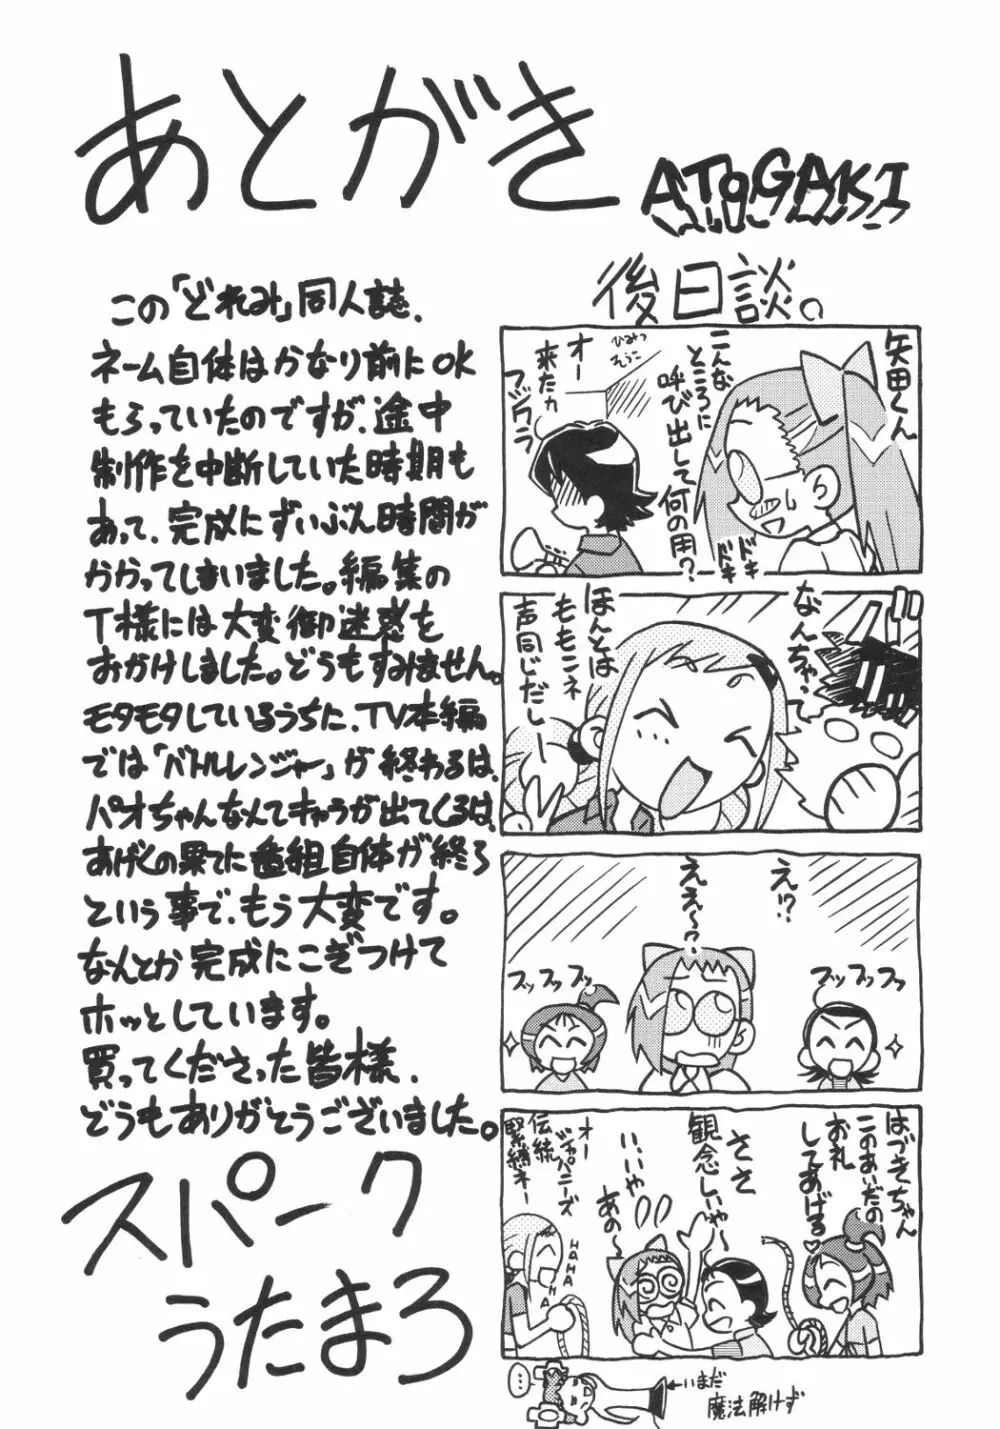 あとがき
ATOGAKI
この「どれみ」同人誌、
ネーム自体はかなり前にOK
もらっていたのですが、途中
制作を中断していた時期も
あって、完成にずいぶん時間が
かかってしまいました。編集の
T様には大変御迷惑を
おかけしました。どうもすみません。
モタモタしているうちに、TV本編
では「バトルレンジャー」が終わるは、
パオちゃんなんてキャラが出てくるは、
あげくの果てに番組自体が終ろ
という事で、もう大変です。
なんとか完成にこぎつけて
ホッとしています。
買ってくださった皆様、
どうもありがとうございました。
スパーク
うたまろ
後日談。
矢田くん
こんな
ところに
呼び出して
何の用?
ドキ
ドキ
ひみつ
そうこ
オー
来たカ
なんちゃって
ほんとは
ももこネ
声同じだしー
え!?
ええ〜?
ブッブッブッ
ブッブッブッ
はづきちゃん
このあいだの
お礼
してあげる♥
ささ
観念しぃや〜
いいや
あの〜
オー
ジャパニーズ
伝統
緊縛ネー
HAHA
HAHA
HA
…
←いまだ
魔法解けず